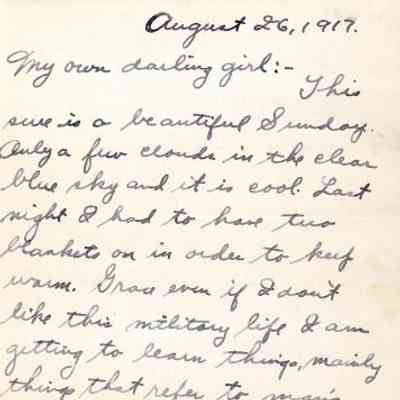 August 26, 1917.
My own darling girl:-
This
sure is a beautiful Sunday.
Only a few clouds in the clear
blue sky and it is cool. Last
night I had to have two
blankets on in order to keep
warm. Grace even if I don't
like this military life I am
getting to learn things, mainly
things that refer to man's